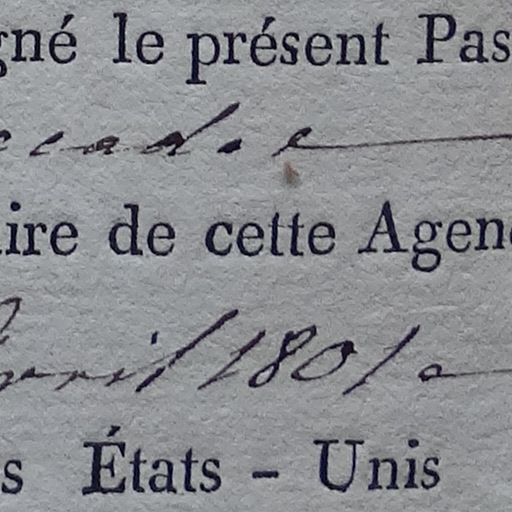 gné le présent Pas
ire de cette Agen
avril 1801
s États - Unis